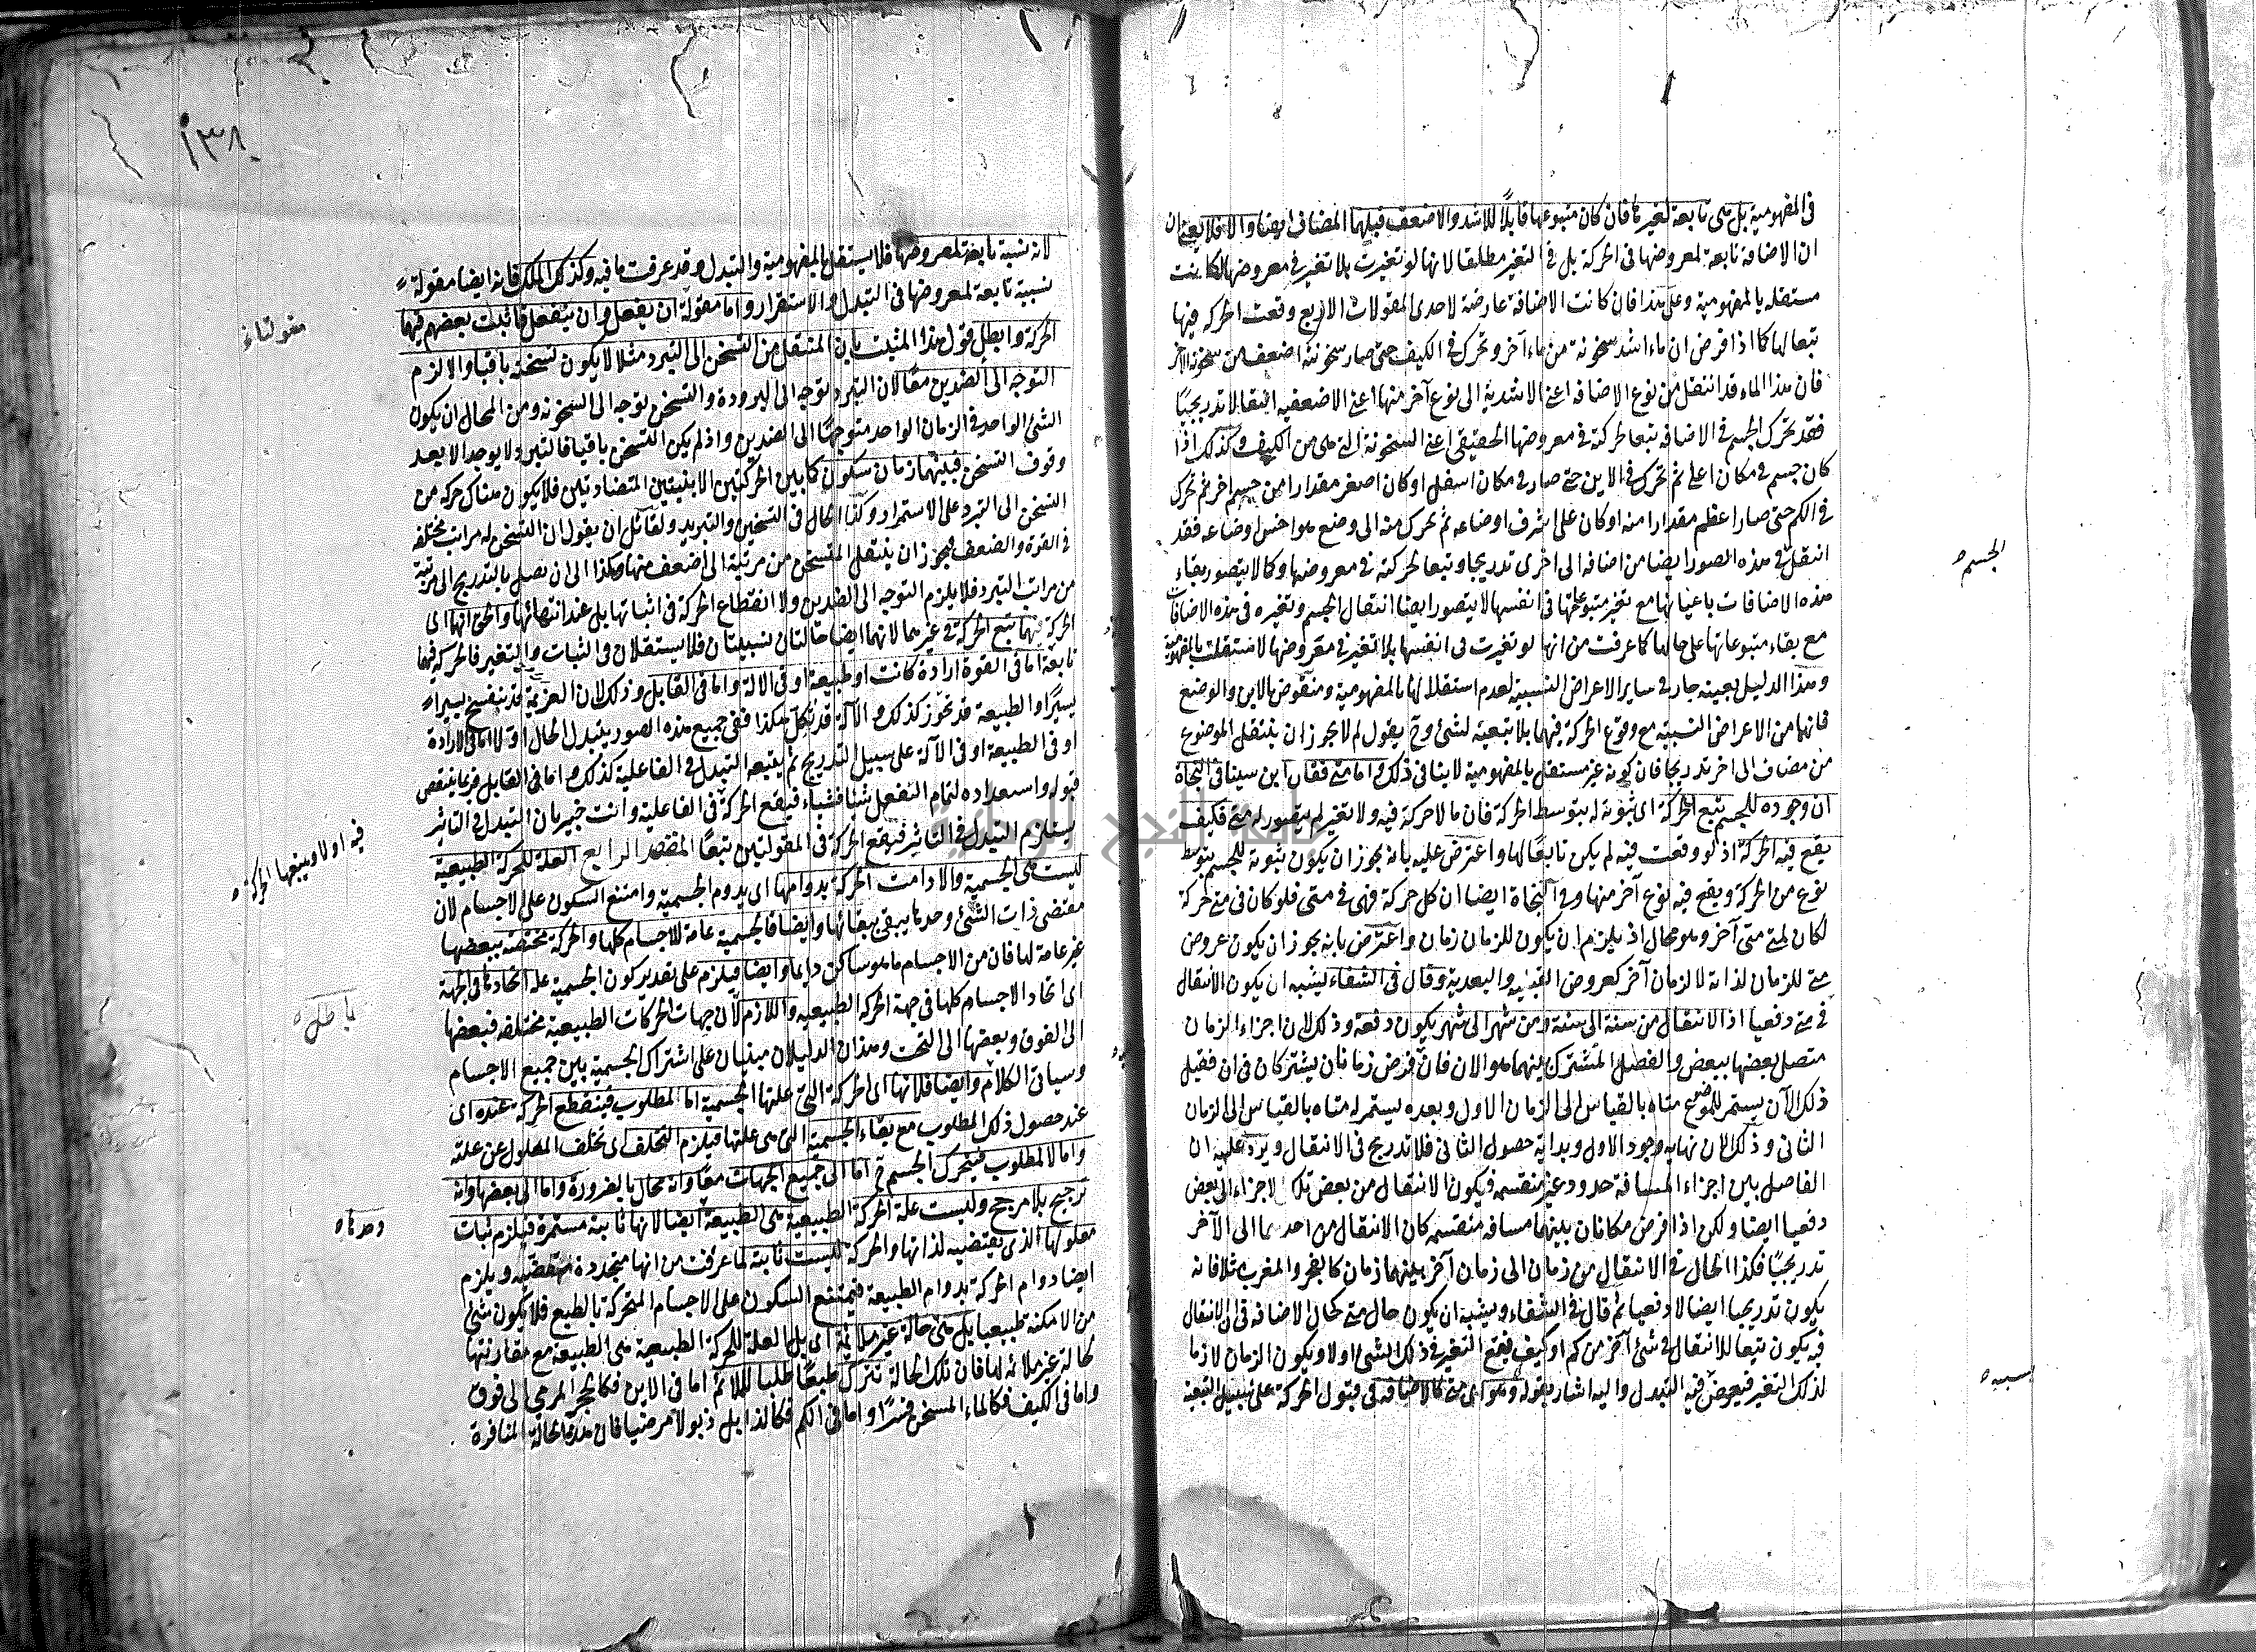 فى المفهومية بل هى تابعة لغيرها فان كان متبوعها قابلا للاشد والاضعف قبلهما المضاف ايضا والا فلا يعنى ان
ان الاضافة تابعة لمعروضها فى الحركة بل فى التغير مطلقا لانها لو تغيرت بلا تغير فى معروضها لكانت
مستقله بالمفهومية وعلى هذا فان كانت الاضافة عارضة لاحدى المقولات الاربع وقعت الحركه فيها
تبعا لها كما اذا فرض ان ماء اشد سخونة من ماء آخر وتحرك فى الكيف حتى صار سخونته اضعف من سخونة الآخر
فان هذا الماء قد انتقل من نوع الاضافه اعنى الاشدية الى نوع آخر منها اعنى الاضعفيه انتقالا تدريجيا
فقد تحرك الجسم فى الاضافه تبعا لحركته فى معروضها الحقيقى اعنى السخونة التى هى من الكيف وكذلك اذا
كان جسم فى مكان اعلى ثم تحرك فى الاين حتى صار فى مكان اسفل او كان اصغر مقدارا من جسم اخر ثم تحرك
فى الكم حتى صار اعظم مقدارا منه او كان على اشرف اوضاعه ثم تحرك منه الى وضع هو اخس اوضاعه فقد
انتقل فى هذه الصور ايضا من اضافه الى اخرى تدريجا وتبعا لحركته فى معروضها وكما لا يتصور بقاء
الجسم
هذه الاضافات باعيانها مع تغير متبوعاتها فى انفسها لا يتصور ايضا انتقال الجسم وتغيره فى هذه الاضافات
مع بقاء متبوعاتها على حالها كما عرفت من انها لو تغيرت فى انفسها بلا تغير فى معروضها لاستقلت بالمفهومية
وهذا الدليل بعينه جار فى ساير الاعراض النسبية لعدم استقلالها بالمفهومية ومنقوض بالاين والوضع
فانهما من الاعراض النسبية مع وقوع الحركة فيهما بلا تبعية لشئ وح يقول لم لا يجوز ان ينتقل الموضوع
من مضاف الى اخر تدريجا فان كونه غير مستقل بالمفهومية لا ينافى ذلك واما متى فقال ابن سينا فى النجاة
ان وجوده للجسم يتبع الحركة اى ثبوته له بتوسط الحركة فان ما لا حركة فيه ولا تغير لم يتصور له متى فكيف
يقع فيه الحركة اذ لو وقعت فيه لم يكن تابعا لها واعترض عليه بانه يجوز ان يكون ثبوته للجسم بتوسط
نوع من الحركة ويقع فيه نوع آخر منها وفى النجاة ايضا ان كل حركة فهى فى متى فلو كان فى متى حركة
لكان لمتى متى آخر وهو محال اذ يلزم ان يكون للزمان زمان واعترض بانه يجوز ان يكون عروض
متى للزمان لذاته لا لزمان آخر كعروض القبليه والبعدية وقال فى الشفاء يشبه ان يكون الانتقال
فى متى دفعيا اذ الانتقال من سنة الى سنة ومن شهر الى شهر يكون دفعة وذلك لان اجزاء الزمان
متصل بعضها ببعض والفصل المشترك بينهما هو الان فاذا فرض زمانان يشتركان فى ان فقبل
ذلك الآن يستمر للموضوع متاه بالقياس الى الزمان الاول وبعده يستمر له متاه بالقياس الى الزمان
الثانى وذلك الان نهاية وجود الاول وبداية حصول الثانى فلا تدريج فى الانتقال ويرد عليه ان
الفاصل بين اجزاء المسافة حدود غير منقسمه فيكون الانتقال من بعض تلك الاجزاء الى بعض
دفعيا ايضا ولكن اذا فرض مكانان بينهما مسافه منقسمه كان الانتقال من احدهما الى الآخر
تدريجيا فكذا الحال فى الانتقال من زمان الى زمان آخر بينهما زمان كالفجر والمغرب مثلا فانه
يكون تدريجيا ايضا لا دفعيا ثم قال فى الشفاء ويشبه ان يكون حال متى كحال الاضافه فى ان الانتقال
فيه يكون تبعا للانتقال فى شئ آخر من كم او كيف فيقع التغير فى ذلك الشئ اولا ويكون الزمان لازما
لذلك التغير فيعرض فيه التبدل واليه اشار بقوله وهو اى متى كالاضافه فى قبول الحركة على سبيل التبعية
۱۳۸
لانه نسبة تابعة لمعروضها فلا يستقل بالمفهومية والتبدل وقد عرفت ما فيه وكذلك الملك فانه ايضا مقولة
نسبية تابعة لمعروضها فى التبدل والاستقرار واما مقولة ان يفعل وان ينفعل فاثبت بعضهم فيهما
مقولتاء
الحركة وابطل قول هذا المثبت بان المنتقل من التسخن الى التبرد مثلا لا يكون تسخنه باقيا والا لزم
التوجه الى الضدين معا لان التبرد توجه الى البرودة والتسخن توجه الى السخونه ومن المحال ان يكون
الشئ الواحد فى الزمان الواحد متوجها الى الضدين واذ لم يكن التسخن باقيا فالتبرد لا يوجد الا بعد
وقوف التسخن فبينهما زمان سكون كما بين الحركتين الاينيتين المتضادتين فلا يكون هناك حركه من
التسخن الى التبرد على الاستمرار وكذا الحال فى التسخين والتبريد ولقائل ان يقول ان التسخن له مراتب مختلفه
فى القوة والضعف فيجوز ان ينتقل المتسخن من مرتبة الى اضعف منها وهكذا الى ان يصل بالتدريج الى مرتبة
من مراتب التبرد فلا يلزم التوجه الى الضدين ولا انقطاع الحركة فى اثنائها بل عند انتهائها والحق انها اى
الحركة فيهما تتبع الحركة فى غيرهما لانهما ايضا حالتان نسبيتان فلا يستقلان فى الثبات والتغير فالحركه فيهما
تابعة اما فى القوة ارادة كانت او طبيعة او فى الالة واما فى القابل وذلك لان العزيمة قد تنفسخ يسيرا
يسيرا والطبيعة قد تخور كذلك والآلة قد تكل هكذا ففى جميع هذه الصور يتبدل الحال اولا اما فى الارادة
او فى الطبيعة او فى الآلة على سبيل التدريج ثم يتبعه التبدل فى الفاعلية كذلك واما فى القابل فربما ينقص
قبوله واستعداده لتمام الفعل شيئا فشياء فيقع الحركة فى الفاعلية وانت خبير بان التبدل فى التاثير
فيه اولا ويتبعها الحركة
يستلزم التبدل فى التاثر فتقع الحركة فى المقولتين تبعا المقصد الرابع العلة للحركة الطبيعية
ليست هى الجسمية والا دامت الحركة بدوامها اى بدوم الجسمية وامتنع السكون على الاجسام لان
مقتضى ذات الشئ وحدها يبقى ببقائها وايضا فالجسمية عامة للاجسام كلها والحركة مختصة ببعضها
غير عامة لها فان من الاجسام ما هو ساكن دايما وايضا فيلزم على تقدير كون الجسمية علة اتحادها فى الجهة
اى اتحاد الاجسام كلها فى جهة الحركة الطبيعيه واللازم لان جهات الحركات الطبيعية مختلفه فبعضها
باطل
الى الفوق وبعضها الى التحت وهذان الدليلان مبنيان على اشتراك الجسمية بين جميع الاجسام
وسياتى الكلام وايضا فلانها اى الحركة التى علتها الجسمية اما لمطلوب فينقطع الحركة عنده اى
عند حصول ذلك المطلوب مع بقاء الجسمية التى هى علتها فيلزم التخلف اى تخلف المعلول عن علته
واما لا لمطلوب فيتحرك الجسم ح اما الى جميع الجهات معا وانه محال بالضرورة واما الى بعضها وانه
ترجيح بلا مرجح وليست علة الحركة الطبيعية هى الطبيعة ايضا لانها ثابتة مستمرة فيلزم ثبات
وحدها
معلولها الذى يقتضيه لذاتها والحركة ليست ثابتة لما عرفت من انها متجددة منقضيه ويلزم
ايضا دوام الحركة بدوام الطبيعة فيمتنع السكون على الاجسام المتحركة بالطبع فلا يكون شئ
من الامكنة طبيعيا بل هى حالة غير ملايمة اى بل العلة للحركة الطبيعية هى الطبيعة مع مقارنتها
لحالة غير ملائمة لها فان تلك الحالة تترك طبعا طلبا للملائم اما فى الاين فكالحجر المرمى الى فوق
واما فى الكيف فكالماء المسخن قسرا واما فى الكم فكالذابل ذبولا مرضيا فان هذه الحالة المنافرة